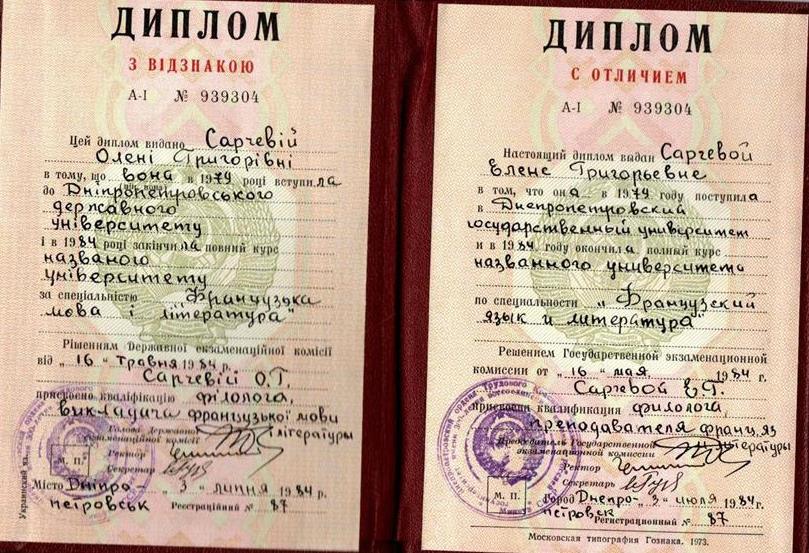 ДИПЛОМ
З ВІДЗНАКОЮ
А-І № 939304
Цей диплом видано Сарчевій
Олені Григорівні
в тому, що вона в 1979 році вступила
до Дніпропетровського
державного
університету
і в 1984 році закінчила повний курс
названого
університету
за спеціальністю „Французька
мова і література"
Рішенням Державної екзаменаційної комісії
від „16" травня 1984 р.
Сарчевій О.Г.
присвоєно кваліфікацію філолога,
викладача французької мови
і літератури
Голова Державної
екзаменаційної комісії
Ректор
Секретар
М. П.
Місто Дніпро-
петровськ „3" липня 1984 р.
Реєстраційний № 87
ДИПЛОМ
С ОТЛИЧИЕМ
А-І № 939304
Настоящий диплом выдан Сарчевой
Елене Григорьевне
в том, что она в 1979 году поступила
в Днепропетровский
государственный университет
и в 1984 году окончила полный курс
названного университета
по специальности „Французский
язык и литература"
Решением Государственной экзаменационной
комиссии от „16" мая 1984 г.
Сарчевой Е.Г.
присвоена квалификация филолога,
преподавателя франц. яз.
и литературы
Председатель Государственной
экзаменационной комиссии
Ректор
Секретарь
М. П.
Город Днепро-
петровск „3" июля 1984 г.
Регистрационный № 87
Московская типография Гознака. 1973.